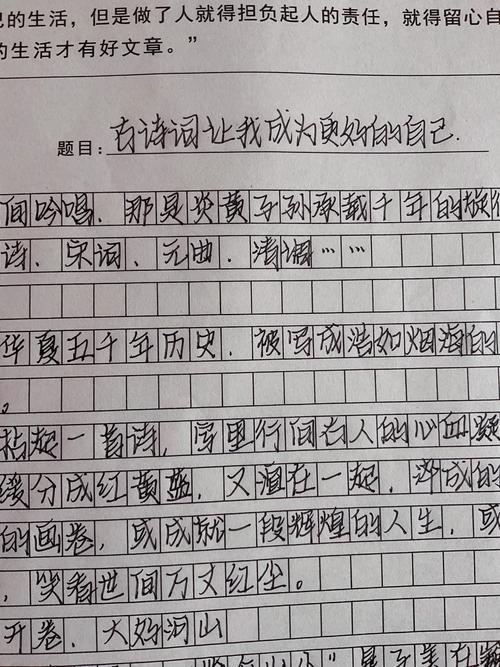 己的生活，但是做了人就得担负起人的责任，就得留心自
的生活才有好文章。”
题目：古诗词让我成为更好的自己.
间吟唱，那是炎黄子孙承载千年的旋
诗、宋词、元曲、清调……
华夏五千年历史，被写成浩如烟海的
。
拈起一首诗，字里行间古人的心血凝
缓分成红黄蓝，又渲在一起，
的画卷，或成就一段辉煌的人生，或
，笑看世间万丈红尘。
开卷，大好河山